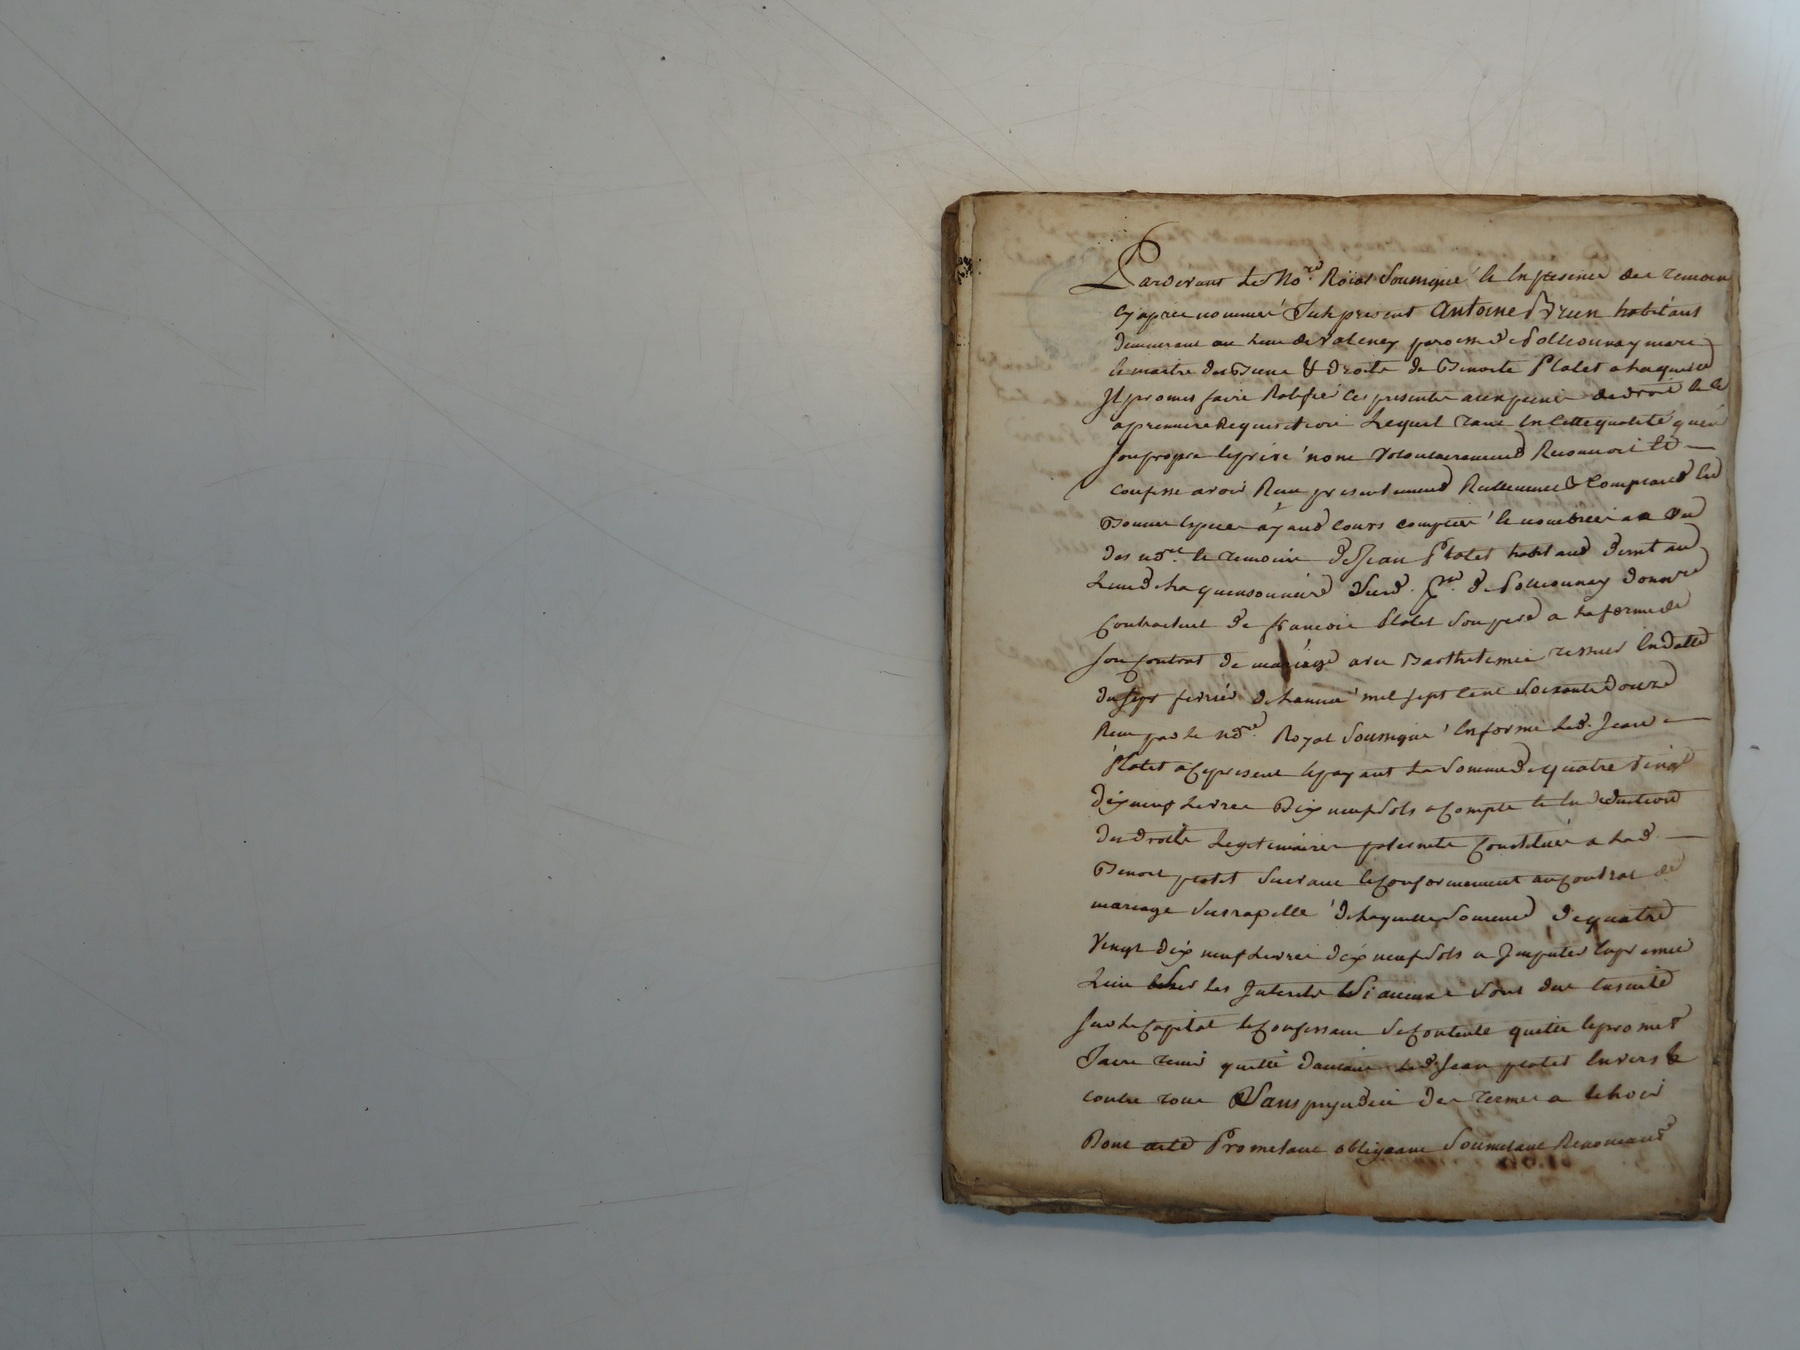 Pardevant Le No.re Roial Soussigné Et En presence des temoins
Cy apres nommés Fut present Antoine Brun habitant
demeurant au Lieu de Valency paroisse de Pollionnay mari
Et maitre des Biens & droits de Benoite Platet a Laquelle
Il promet faire Ratifier Ces presentes a la premiere Requisition Lequel tant En Cette qualité qu'en
Son propre Et privé nom Volontairement Reconnoit Et
Confesse avoir Reçu presentement Reellement & Comptant En
Bonnes Especes ayant Cours Comptées Et nombrées a Vu
des no.re Et temoins de Jean Platet habitant demt au
Lieu de La quensonniere Sud. P.sse de Pollionnay donnre
Contractuel de françois Platet Son pere a La forme de
Son Contrat de mariage avec Barthelemie tisseur En datte
du Sept fevrier de L'année mil sept Cent Soixante douze
Reçu par le no.re Royal Soussigné En forme Led. Jean
Platet a Ce present Et payant La Somme de quatre Vingt
Dix neuf Livres Dix neuf Sols a Compte Et En deduction
Des droits Legitimaires paternels Constitués a Lad.
Benoit platet Suivant Et Conformement au Contrat de
mariage Susrapellé de Laquelle Somme de quatre
Vingt dix neuf Livres dix neuf Sols a Imputer En premier
Lieu Sur Les Interets Si aucuns Sont dus Ensuite
Sur Le Capital Le Confessant Se Contente quitte Et promet
Faire tenir quitte Led. Jean platet Envers Et
Contre tous Sans prejudice des termes a Echoir
Dont acte Promettant obligeant Soumetant Renonçant